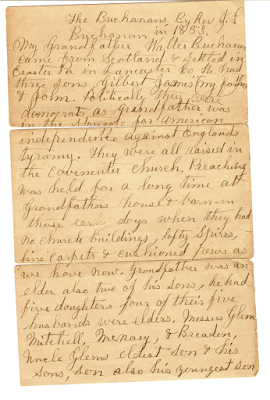 The Buchanans, By Rev J. S.
Buchanan in 1883,
My Grandfather Walter Buchanan
came from Scotland & settled in
Pa in Lancaster Co. He had
three sons Gilbert James (my father)
& John. Politically they were
democrats as Grandfather was
in the struggle for American
independence against Englands
tyranny. They were all raised in
the Covenanter Church. Preaching
was held for a long time at
Grandfathers house & barn in
those early days when they had
no church buildings, lofty Spires,
fine Carpets & cushioned pews as
we have now. Grandfather was an
elder also two of his sons, he had
five doughters four of their five
husbands were elders. Messrs Glenn
Mitchell, McNary, & Breaden,
Uncle Glenns eldest son & his
sons, son also his youngest son